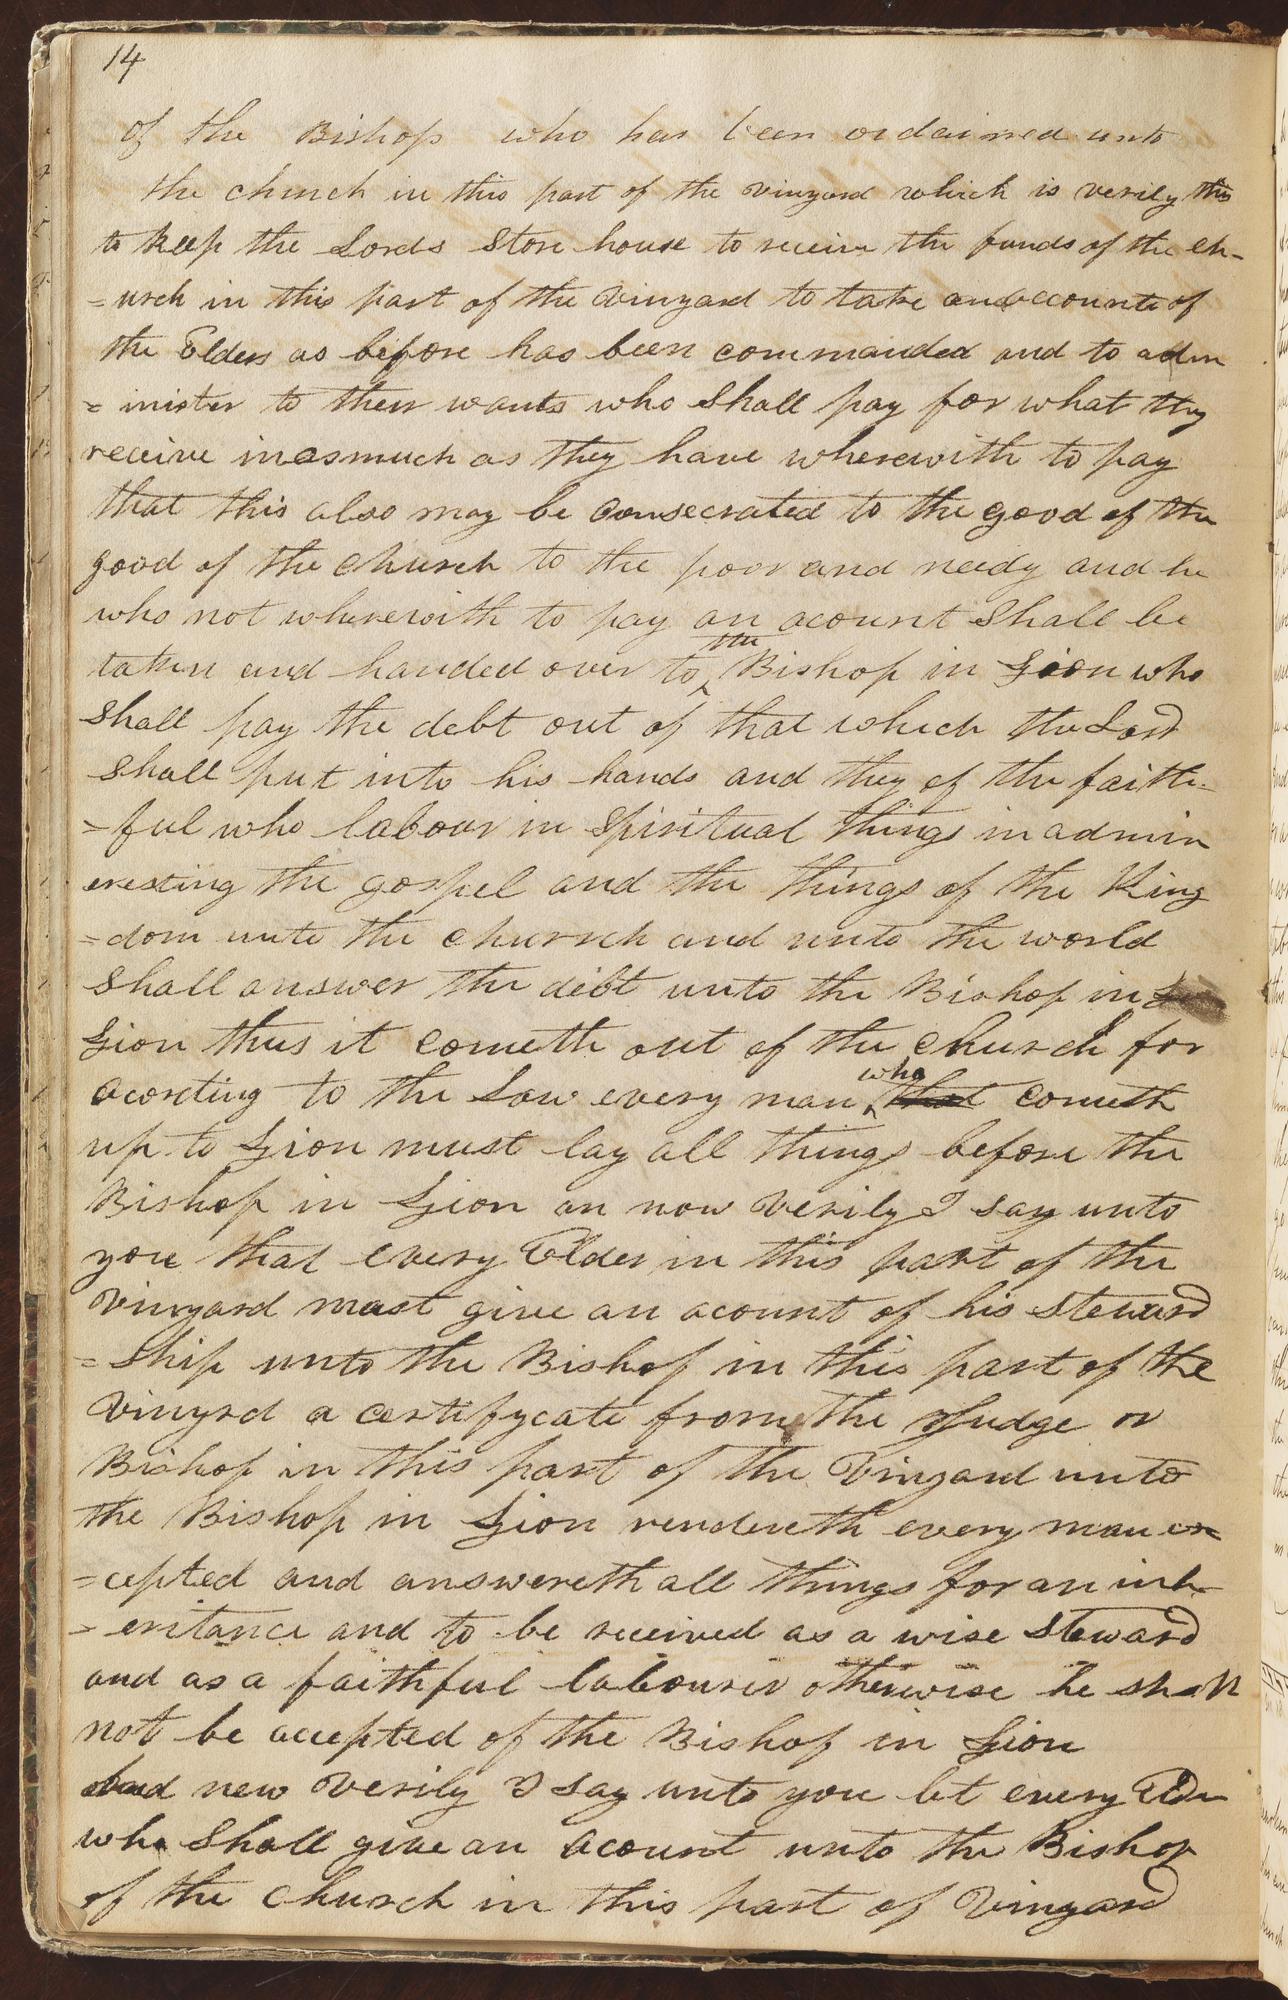 14
of the Bishop who has been ordained unto
the church in this part of the vinyard which is verily this
to keep the Lords Store house to receive the funds of the ch-
=urch in this part of the vinyard to take an accounts of
the Elders as before has been commanded and to adm
=inister to their wants who Shall pay for what they
receive inasmuch as they have wherewith to pay
that this also may be consecrated to the good of the
good of the church to the poor and needy and he
who not wherewith to pay an acount Shall be
taken and handed over to the Bishop in Zion who
Shall pay the debt out of that which the Lord
Shall put into his hands and they of the faith-
=ful who labour in Spiritual things in admin
eresting the gospel and the things of the King
=dom unto the church and unto the world
Shall answer the debt unto the Bishop in
Zion thus it cometh out of the church for
acording to the Law every man who that cometh
up to Zion must lay all things before the
Bishop in Zion an now verily I say unto
you that every Elder in this part of the
Vinyard must give an acount of his Steward
=Ship unto the Bishop in this part of the
Vinyrd a certifycate from the Judge or
Bishop in this part of the Vinyard unto
the Bishop in Zion rendereth every man ex
=cepted and answereth all things for an inh-
=eritance and to be received as a wise Steward
and as a faithful labourer otherwise he shall
not be accepted of the Bishop in Zion
And now verily I say unto you let every Elder
who Shall give an acount unto the Bishop
of the church in this part of Vinyard